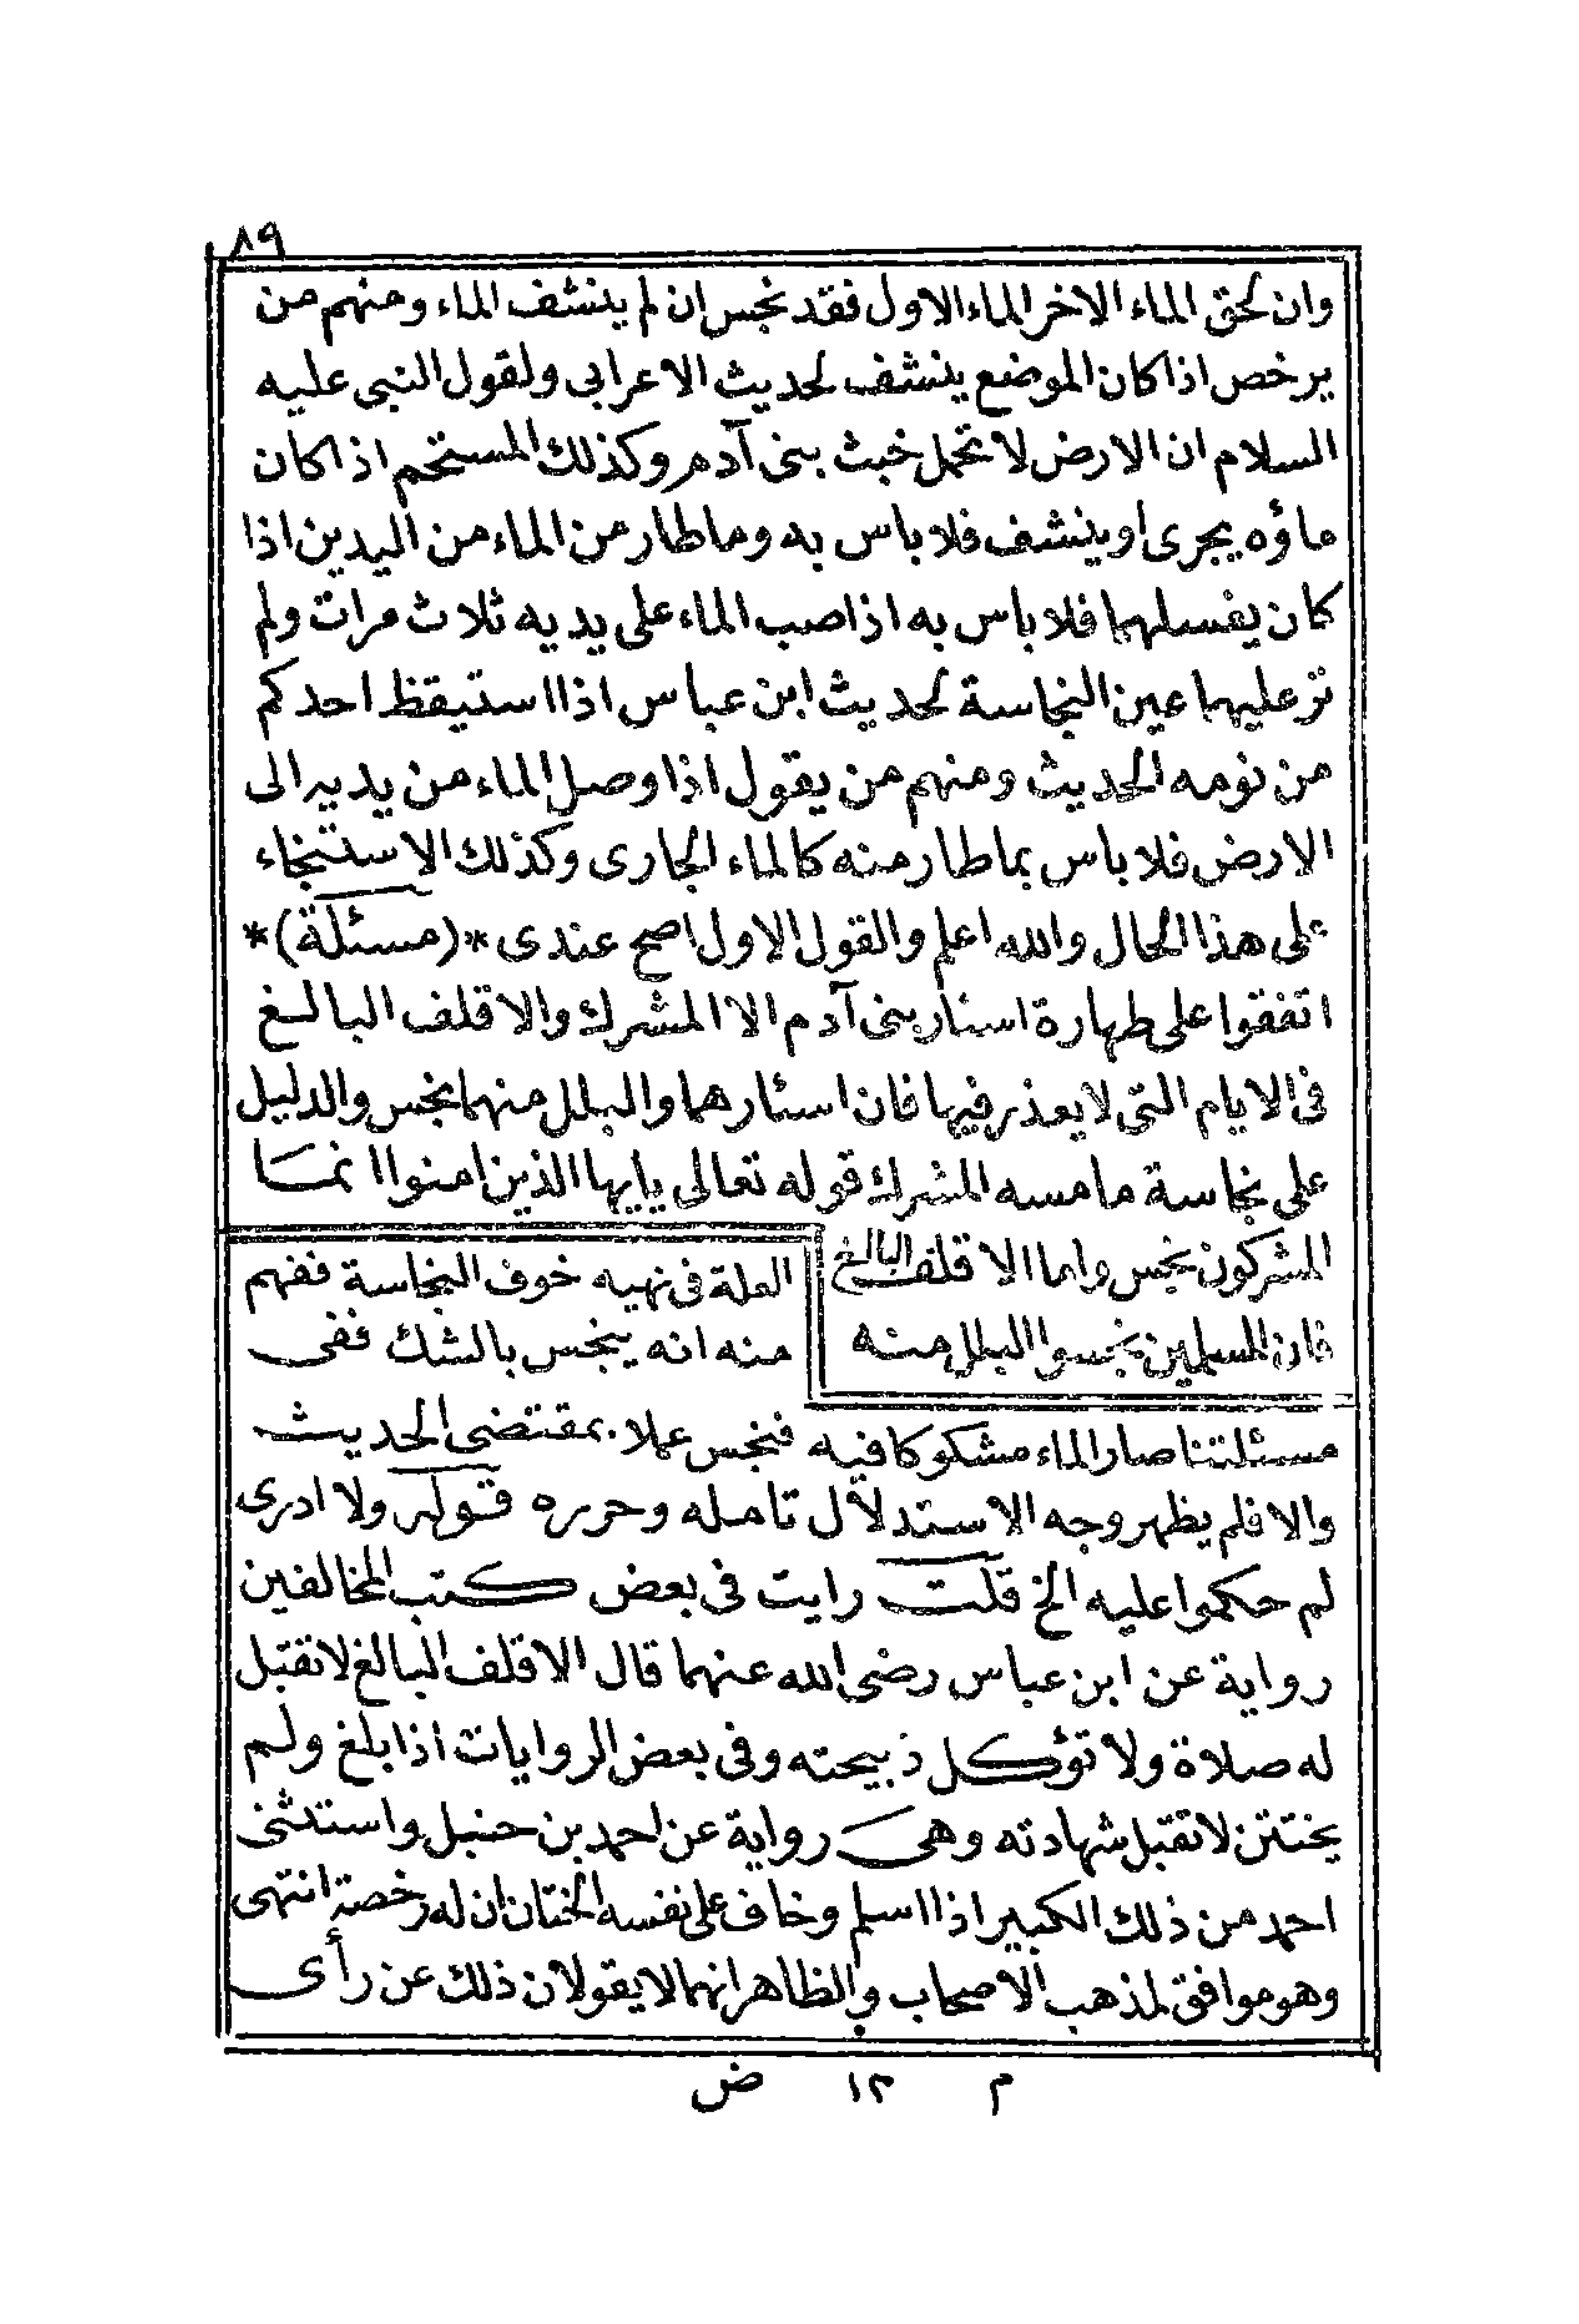 ٨٩
وان لحق الماء الاخر الماء الاول فقد نجس ان لم ينشف الماء ومنهم من
يرخص اذا كان الموضع ينشف لحديث الاعرابى ولقول النبى عليه
السلام ان الارض لا تحمل خبث بنى آدم وكذلك المستحم اذا كان
ماؤه يجرى او ينشف فلا باس به وما طار من الماء من اليدين اذا
كان يغسلهما فلا باس به اذا صب الماء على يديه ثلاث مرات ولم
تر عليهما عين النجاسة لحديث ابن عباس اذا استيقظ احدكم
من نومه الحديث ومنهم من يقول اذا وصل الماء من يديه الى
الارض فلا باس بما طار منه كالماء الجارى وكذلك الاستنجاء
على هذا الحال والله اعلم والقول الاول اصح عندى *(مسئلة)*
اتفقوا على طهارة اسئار بنى آدم الا المشرك والاقلف البالغ
فى الايام التى لا يعذر فيها فان اسئارهما والبلل منهما نجس والدليل
على نجاسة ما مسه المشرك قوله تعالى يايها الذين امنوا انمـا
المشركون نجس واما الاقلف البالغ
فان المسلمين نجسوا البلل منه
العلة فى نهيه خوف النجاسة ففهم
منه انه ينجس بالشك ففى
مسئلتنا صار الماء مشكوكا فيه فنجس عملا بمقتضى الحديث
والا فلم يظهر وجه الاستدلال تامله وحرره قوله ولا ادرى
لم حكموا عليه الخ قلت رايت فى بعض كتب المخالفين
رواية عن ابن عباس رضى الله عنهما قال الاقلف البالغ لا تقبل
له صلاة ولا تؤكل ذبيحته وفى بعض الروايات اذا بلغ ولم
يختتن لا تقبل شهادته وهى رواية عن احمد بن حنبل واستثنى
احمد من ذلك الكبير اذا اسلم وخاف على نفسه الختان ان له رخصة انتهى
وهو موافق لمذهب الاصحاب والظاهر انهما لا يقولان ذلك عن رأى
م ١٢ ض